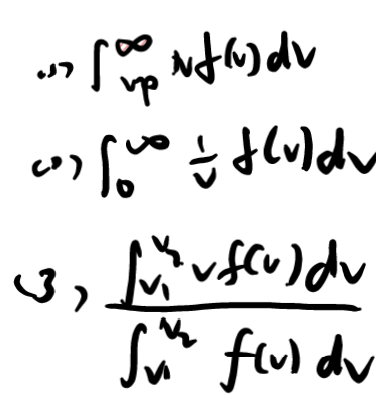 (1) ∫_{vp}^{∞} N f(v) dv
(2) ∫_{0}^{∞} 1/v f(v) dv
(3) ∫_{v1}^{v2} v f(v) dv / ∫_{v1}^{v2} f(v) dv